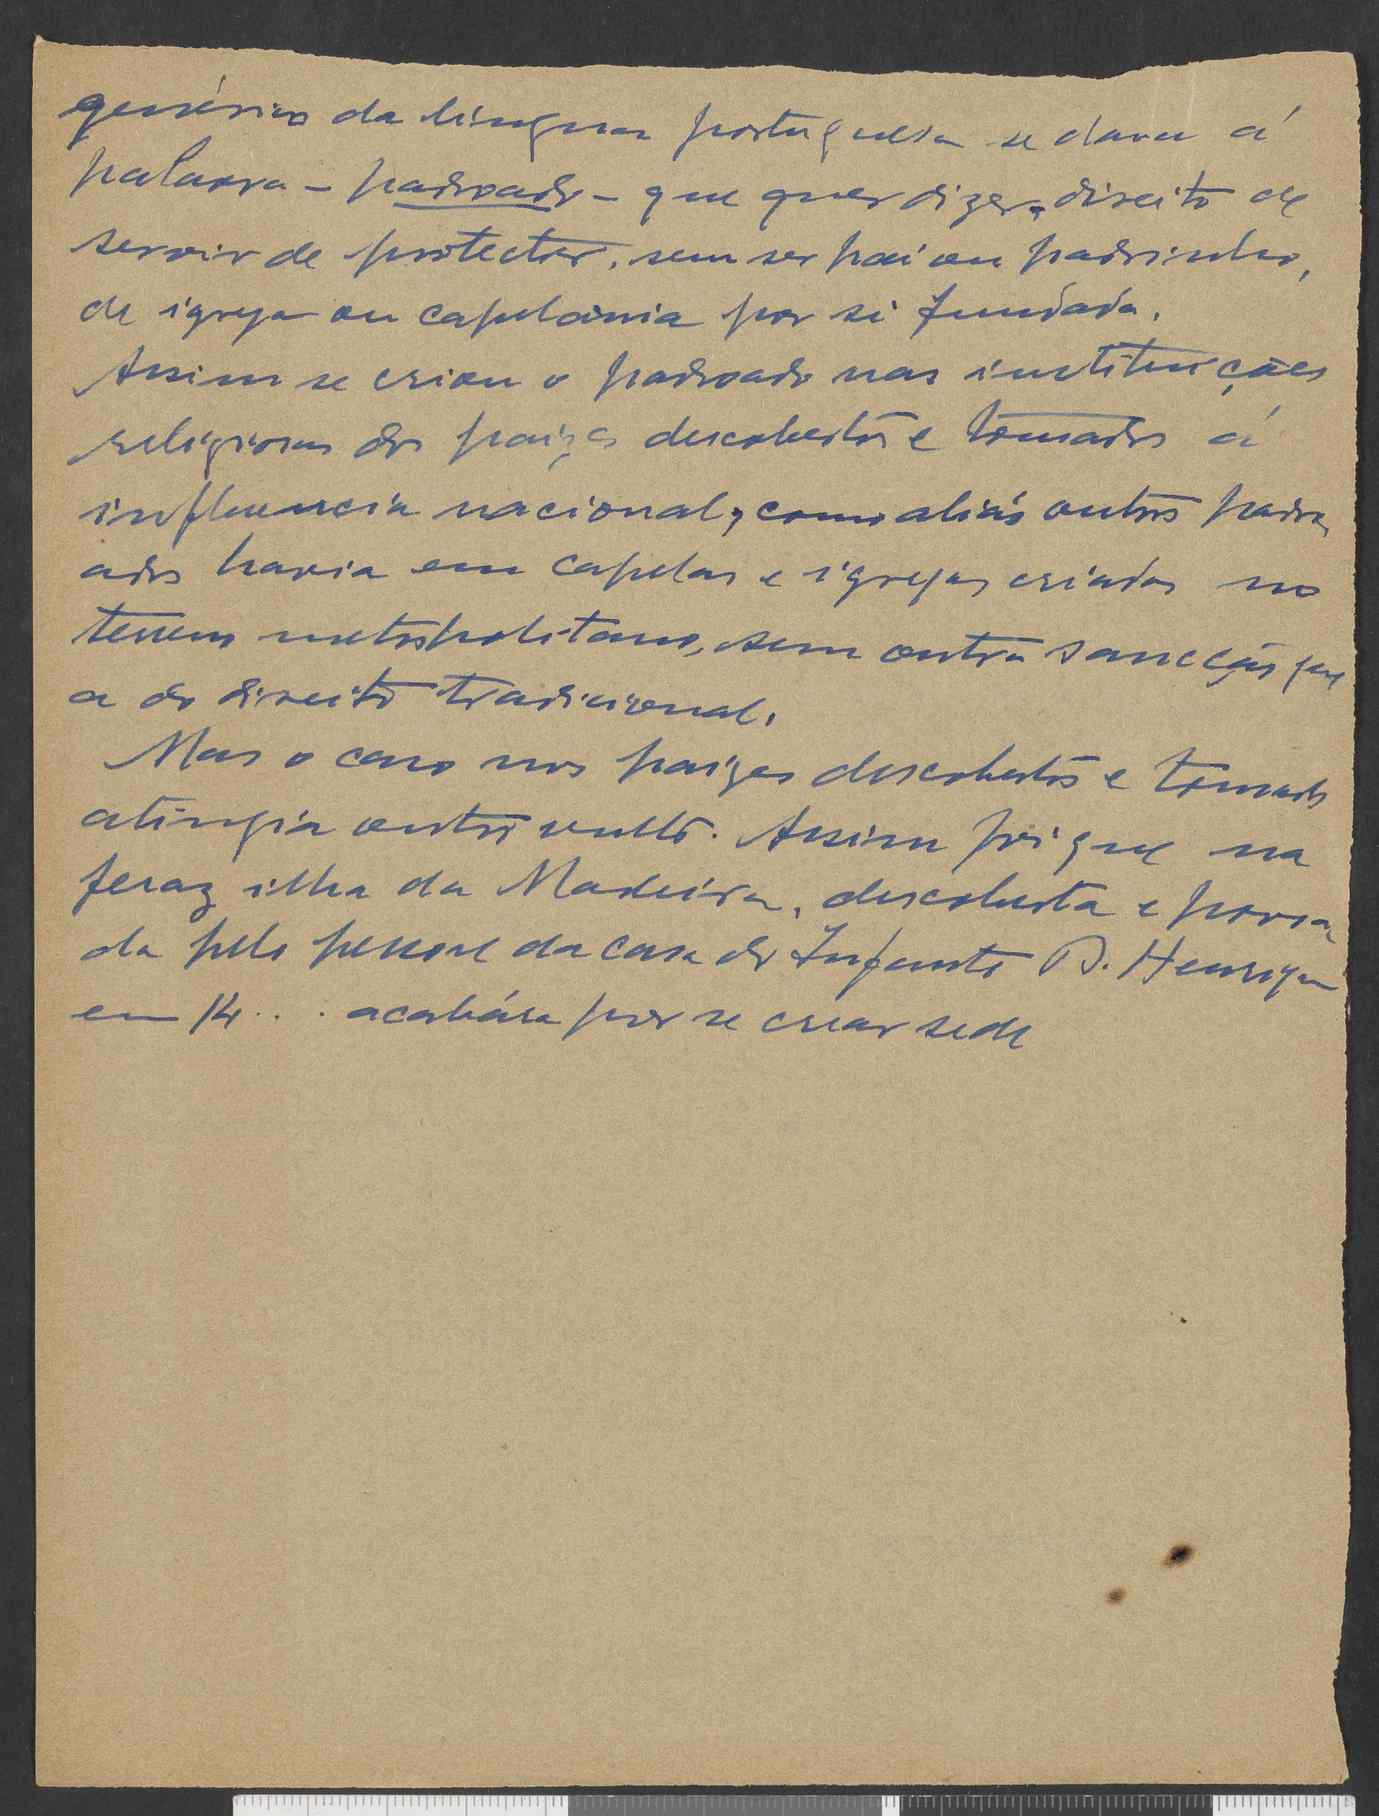 genérico da lingua portuguesa se dava á
palavra - padroado - que quer dizer, direito de
servir de protector, sem ser pai ou padrinho,
de igreja ou capelania por si fundada.
Assim se criou o padroado nas instituições
religiosas dos paizes descobertos e tomados á
influencia nacional, como aliás outros padro
ados havia em capelas e igrejas criadas no
terreno metropolitano, sem outra sancção que
a do direito tradicional.
Mas o caso nos paizes descobertos e tomados
atingia outro vulto. Assim foi que na
feraz ilha da Madeira, descoberta e povoa
da pelo pessoal da casa do Infante D. Henrique
em 14... acabára por se crear sede